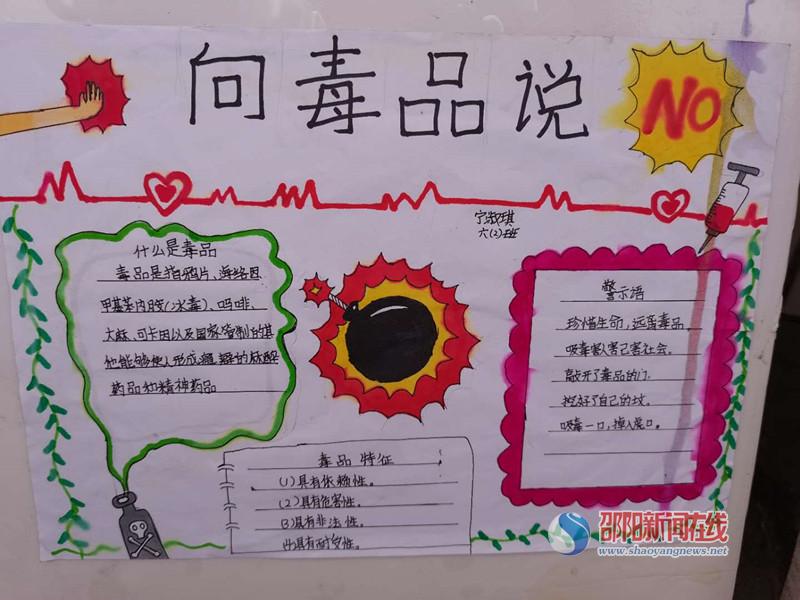 向毒品说 NO
宁淑琪
六(2)班
什么是毒品
毒品是指鸦片、海洛因、
甲基苯丙胺(冰毒)、吗啡、
大麻、可卡因以及国家管制的其
他能够使人形成瘾癖的麻醉
药品和精神药品
毒品特征
(1)具有依赖性。
(2)具有危害性。
(3)具有非法性。
(4)具有耐受性。
警示语
珍惜生命,远离毒品。
吸毒害人害己害社会。
敲开了毒品的门,
挖好了自己的坟。
吸毒一口,掉入虎口。
邵阳新闻在线
www.shaoyangnews.net